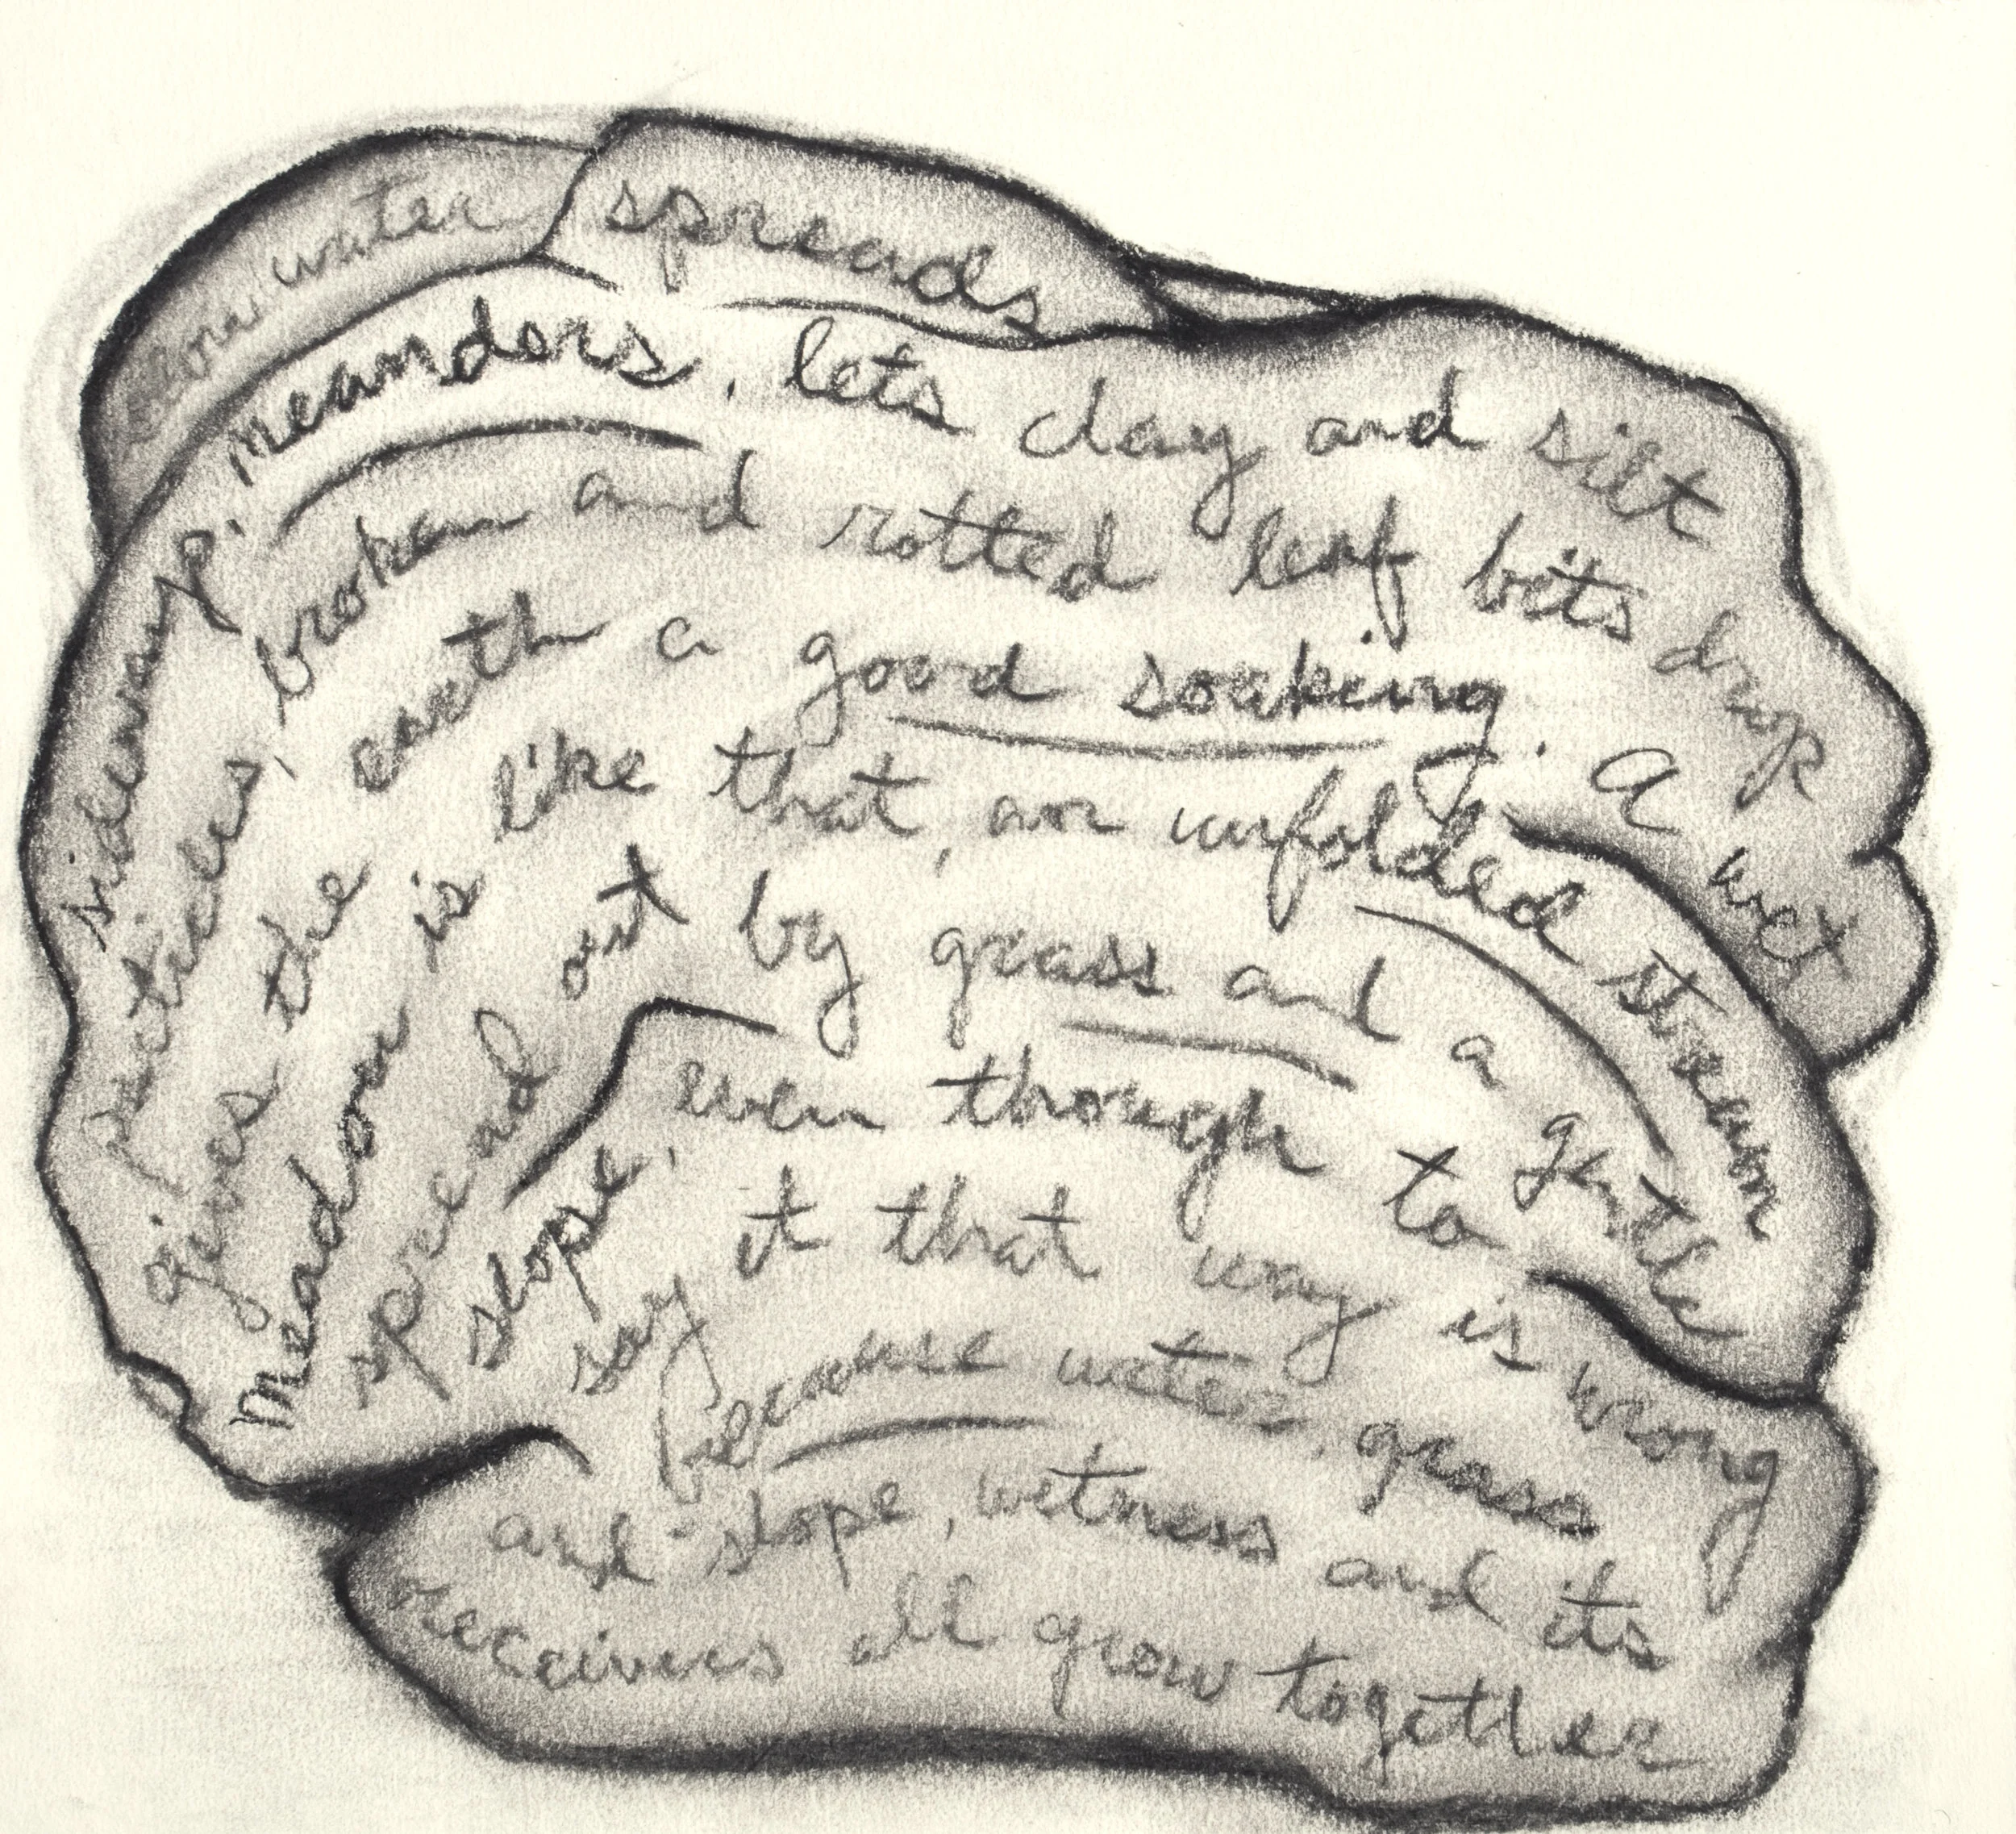 slow water spreads
sideways, meanders, lets clay and silt
particles, broken and rotted leaf bits drop
gives the earth a good soaking. A wet
meadow is like that, an unfolded stream
spread out by grass and a gentle
slope, even though to
say it that way is wrong
because water, grass
and slope, wetness and its
receivers all grow together